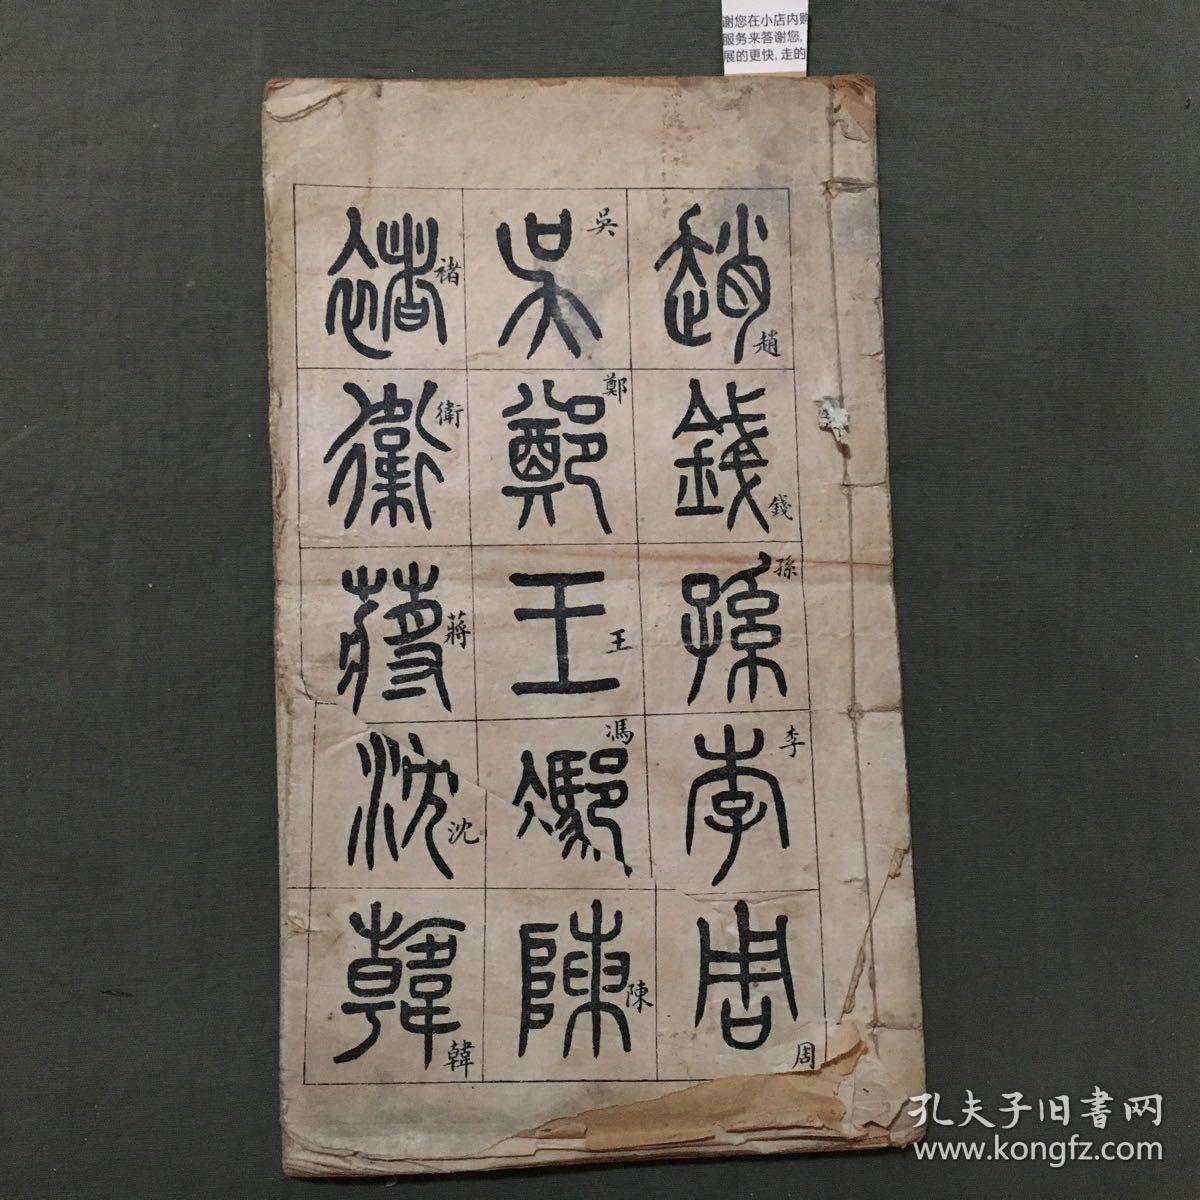 谢您在小店内购
服务来答谢您,
展的更快,走的
趙錢孫李周
趙錢孫李周
吳鄭王馮陳
吳鄭王馮陳
褚衛蔣沈韓
褚衛蔣沈韓
孔夫子旧書网
www.kongfz.com